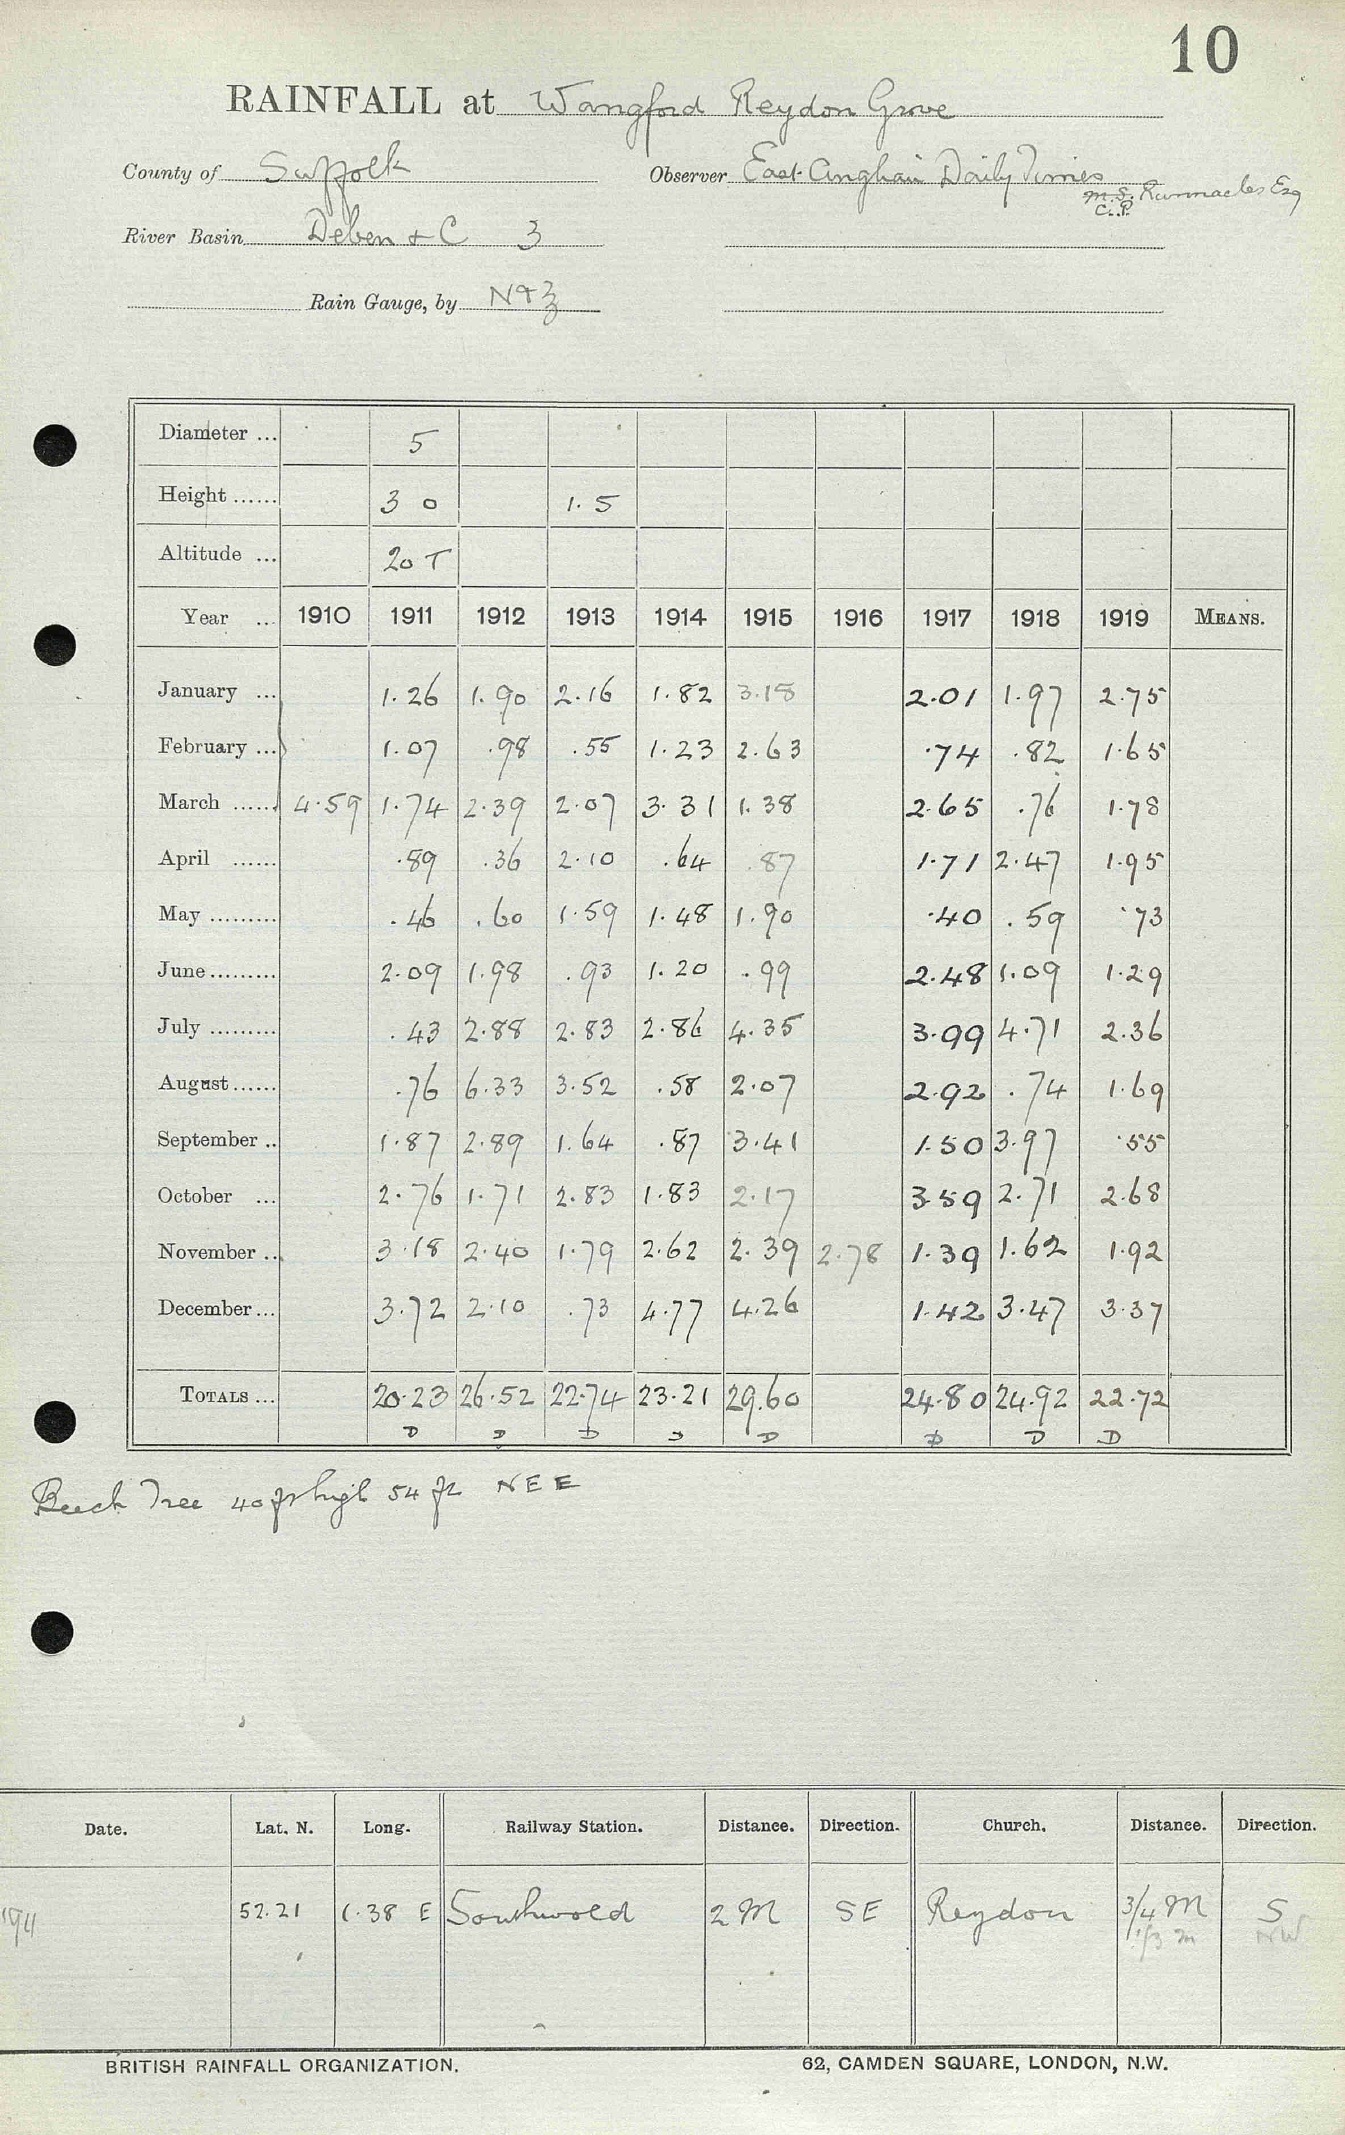 10
RAINFALL at Wangford Reydon Grove
County of Suffolk Observer East Anglian Daily Times
M.S. Runnacles Esq
C.P.
River Basin Deben & C 3
Rain Gauge, by N & Z
Diameter ... 5
Height ...... 3 0 1.5
Altitude ... 20 T
Year ... 1910 1911 1912 1913 1914 1915 1916 1917 1918 1919 MEANS.
January ... 1.26 1.90 2.16 1.82 3.18 2.01 1.97 2.75
February ... 1.07 .98 .55 1.23 2.63 .74 .82 1.65
March ...... 4.59 1.74 2.39 2.07 3.31 1.38 2.65 .76 1.78
April ...... .89 .36 2.10 .64 .87 1.71 2.47 1.95
May ......... .46 .60 1.59 1.48 1.90 .40 .59 .73
June ......... 2.09 1.98 .93 1.20 .99 2.48 1.09 1.29
July ......... .43 2.88 2.83 2.86 4.35 3.99 4.71 2.36
August ...... .76 6.33 3.52 .58 2.07 2.92 .74 1.69
September .. 1.87 2.89 1.64 .87 3.41 1.50 3.97 .55
October ... 2.76 1.71 2.83 1.83 2.17 3.59 2.71 2.68
November ... 3.18 2.40 1.79 2.62 2.39 2.78 1.39 1.62 1.92
December ... 3.72 2.10 .73 4.77 4.26 1.42 3.47 3.37
TOTALS ... 20.23 26.52 22.74 23.21 29.60 24.80 24.92 22.72
D D D D D D D D
Beech Tree 40 ft high 54 ft NEE
Date. Lat. N. Long. Railway Station. Distance. Direction. Church. Distance. Direction.
52.21 1.38 E Southwold 2 M SE Reydon 3/4 M S
1/3 m NW
BRITISH RAINFALL ORGANIZATION. 62, CAMDEN SQUARE, LONDON, N.W.